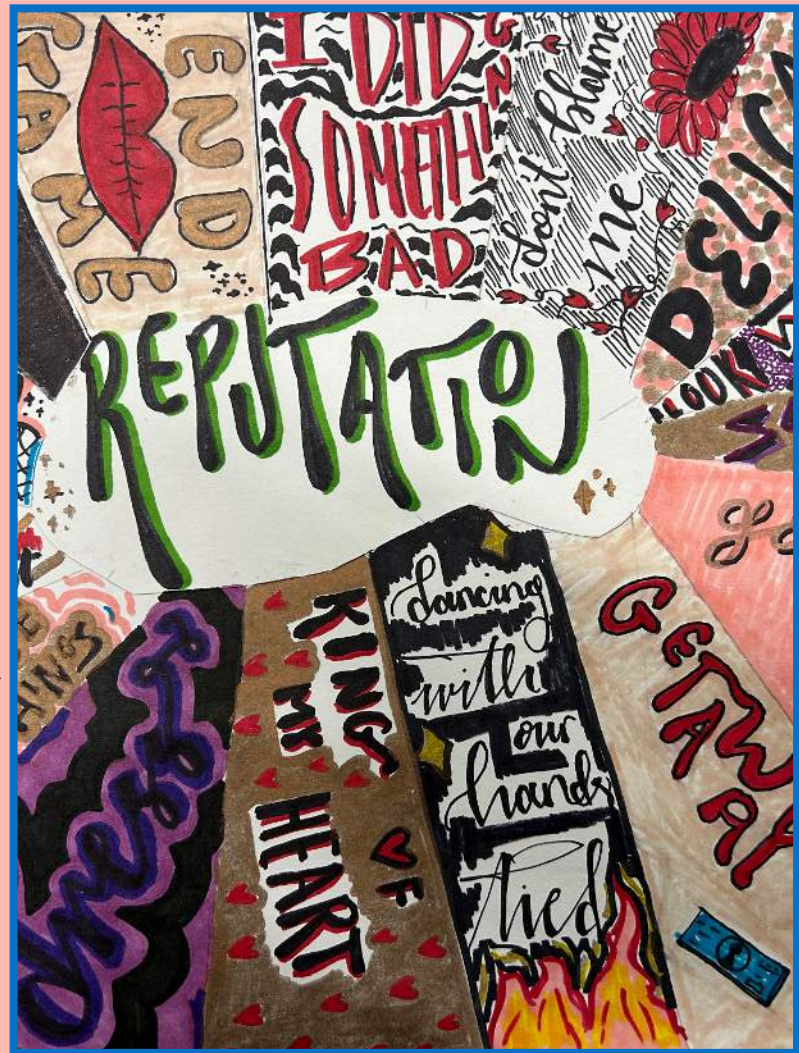 END
GAME
I DID
SOMETHING
BAD
don't blame
me
DELI
LOOK
REPUTATION
dress
KING OF
MY
HEART
dancing
with
our
hands
tied
GETAWAY